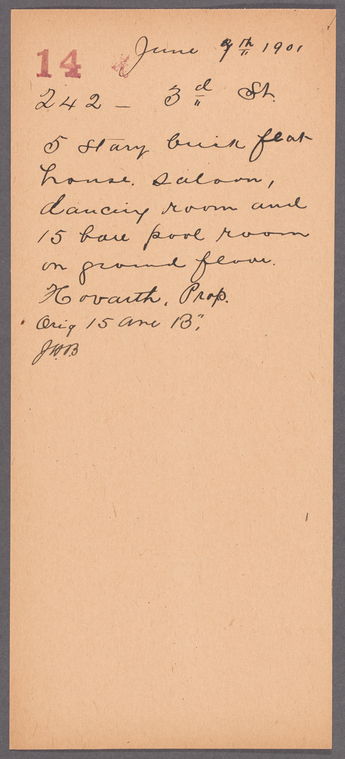 June 7th 1901
14
242 - 3d St.
5 story brick flat
house. saloon,
dancing room and
15 ball pool room
on ground floor.
Hovarth, Prop.
Orig 15 Ave B,